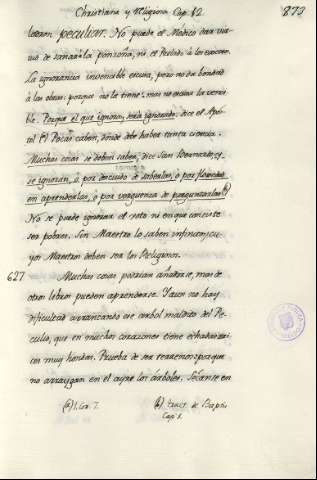 Christiana y Religiosa Cap. 12. 273
peculiar. No puede el Medico dar vir
tud de sanar a la ponzoña, ni el Prelado à los excesos.
La ignorancia invencible escusa, pero no da bondad
à las obras: porque no la tiene: mas no escusa la venci
ble. Porque el que ignora, será ignorado, dice el Após
tol (a) Pocas caben, donde debe haber tanta ciencia.
Muchas cosas se deben saber, dice San Bernardo, q.
se ignoran, ò por descuido de saberlas, ò por floxedad
en aprenderlas, ò por verguenza de preguntarlas (b)
No se puede ignorar el voto ni en que consiste
ser pobres. Sin Maestro lo saben infinitos, cu
yos Maestros deben ser los Religiosos.
627 Muchas cosas podrian añadirse, mas de
otros libros pueden aprenderse. Y aun no hay
dificultad arrancando este arbol maldito del Pe
culio, que en muchos corazones tiene echadas rai
ces muy hondas. Prueba de ser terrenos: porque
no arraygan en el ayre los árboles. Secanse en
(a) 1. Cor. 7. (b) Tract. de Baptis.
Cap. 1.